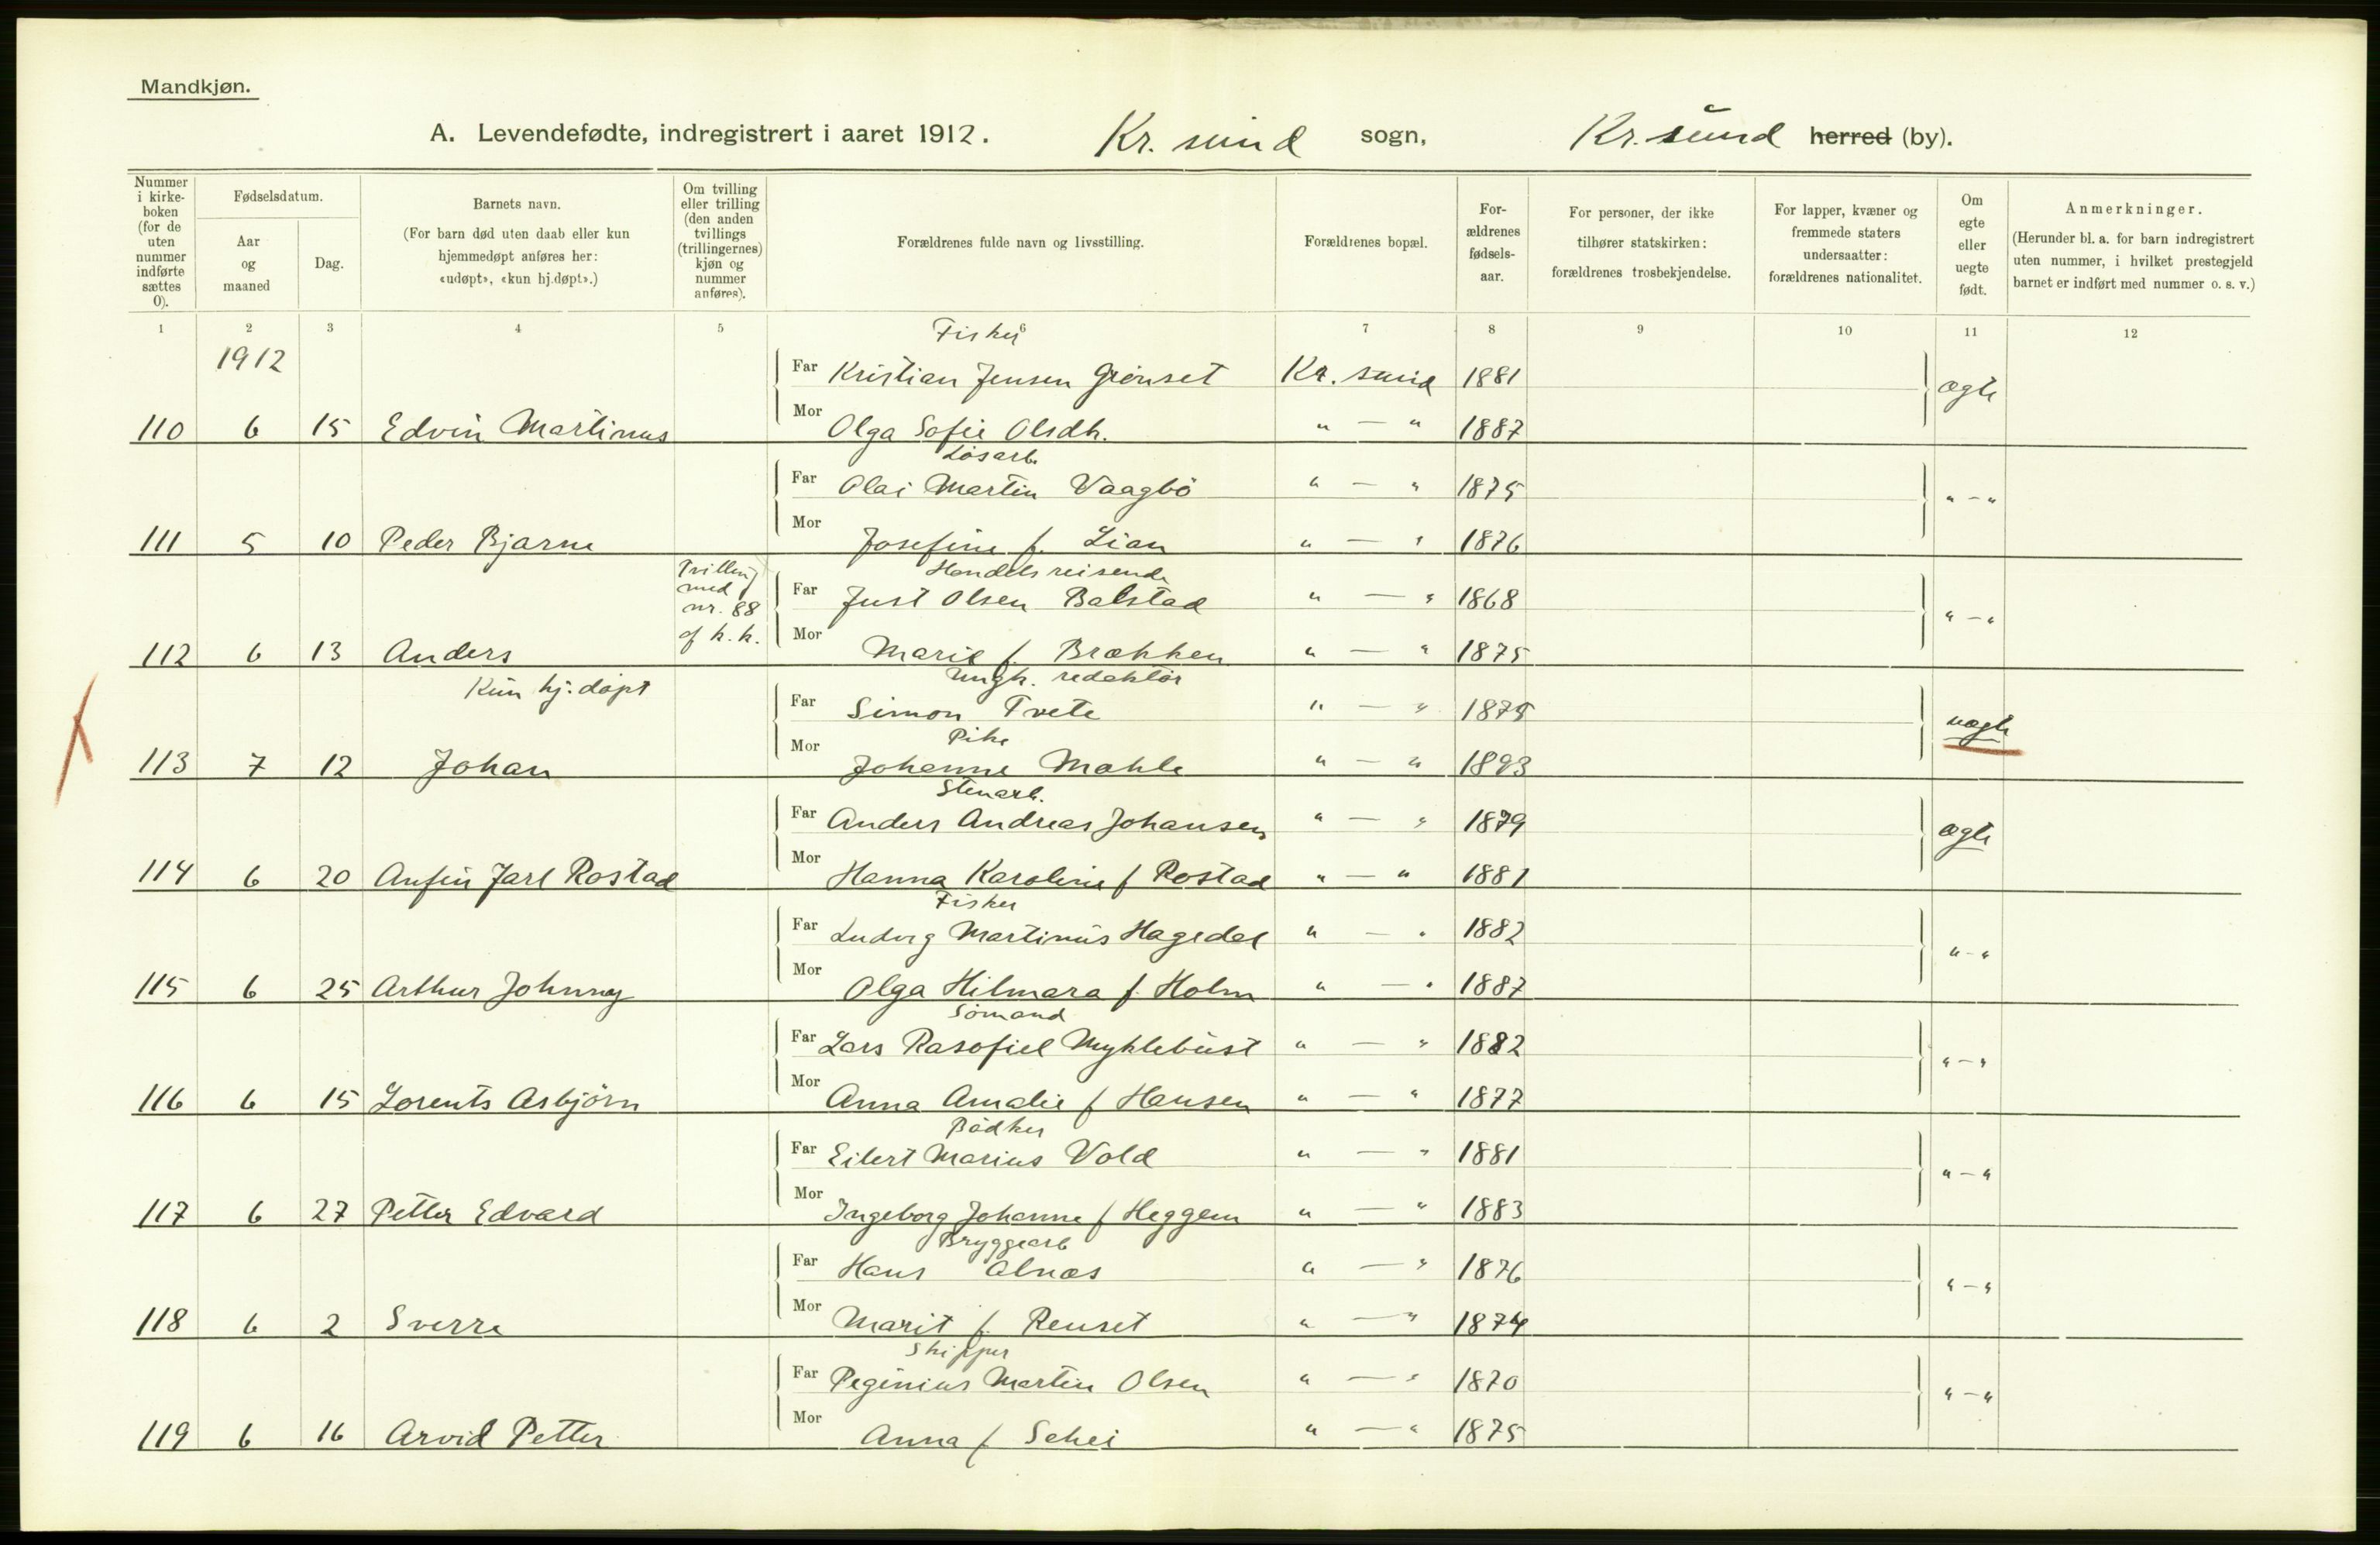 Mandkjøn.
A. Levendefødte, indregistrert i aaret 1912. Kr. sund sogn, Kr. sund herred (by).
Nummer i kirke-boken (for de uten nummer indførte sættes 0).
Fødselsdatum.
Aar og maaned
Dag.
Barnets navn.
(For barn død uten daab eller kun hjemmedøpt anføres her: «udøpt», «kun hj.døpt».)
Om tvilling eller trilling (den anden tvillings (trillingernes) kjøn og nummer anføres).
Forældrenes fulde navn og livsstilling.
Forældrenes bopæl.
For-ældrenes fødsels-aar.
For personer, der ikke tilhører statskirken: forældrenes trosbekjendelse.
For lapper, kvæner og fremmede staters undersaatter: forældrenes nationalitet.
Om egte eller uegte født.
Anmerkninger.
(Herunder bl. a. for barn indregistrert uten nummer, i hvilket prestegjeld barnet er indført med nummer o. s. v.)
1 2 3 4 5 6 7 8 9 10 11 12
1912
Fisker
Far Kristian Jensen Grönset Kr. sund 1881 ægte
110 6 15 Edvin Martinus Mor Olga Sofie Olsdh. " — " 1887
Lösarb.
Far Olai Martin Vaagbö " — " 1875 " — "
111 5 10 Peder Bjarne Mor Josefine f. Lian " — " 1876
Tvilling med nr. 88 af k. k.
Handelsreisende
Far Just Olsen Balstad " — " 1868 " — "
112 6 13 Anders Mor Marie f. Brækken " — " 1875
Kun hj. döpt
Ungk. redaktör
Far Simon Tvete " — " 1875 uægte
Pike
113 7 12 Johan Mor Johanne Mahle " — " 1893
Stenarb.
Far Anders Andreas Johansen " — " 1879 ægte
114 6 20 Anfin Jarl Rostad Mor Hanna Karoline f Rostad " — " 1881
Fisker
Far Ludvig Martinus Hagedal " — " 1882 " — "
115 6 25 Arthur Johnny Mor Olga Hilmara f. Holm " — " 1887
Sömand
Far Lars Rasofiel Myklebust " — " 1882 " — "
116 6 15 Lorents Asbjörn Mor Anna Amalie f Hansen " — " 1877
Bödker
Far Eilert Marius Vold " — " 1881 " — "
117 6 27 Petter Edvard Mor Ingeborg Johanne f Heggem " — " 1883
Bryggearb
Far Hans Alnæs " — " 1876 " — "
118 6 2 Sverre Mor Marit f. Renset " — " 1874
Skipper
Far Peginius Martin Olsen " — " 1870 " — "
119 6 16 Arvid Petter Mor Anna f Schei " — " 1875